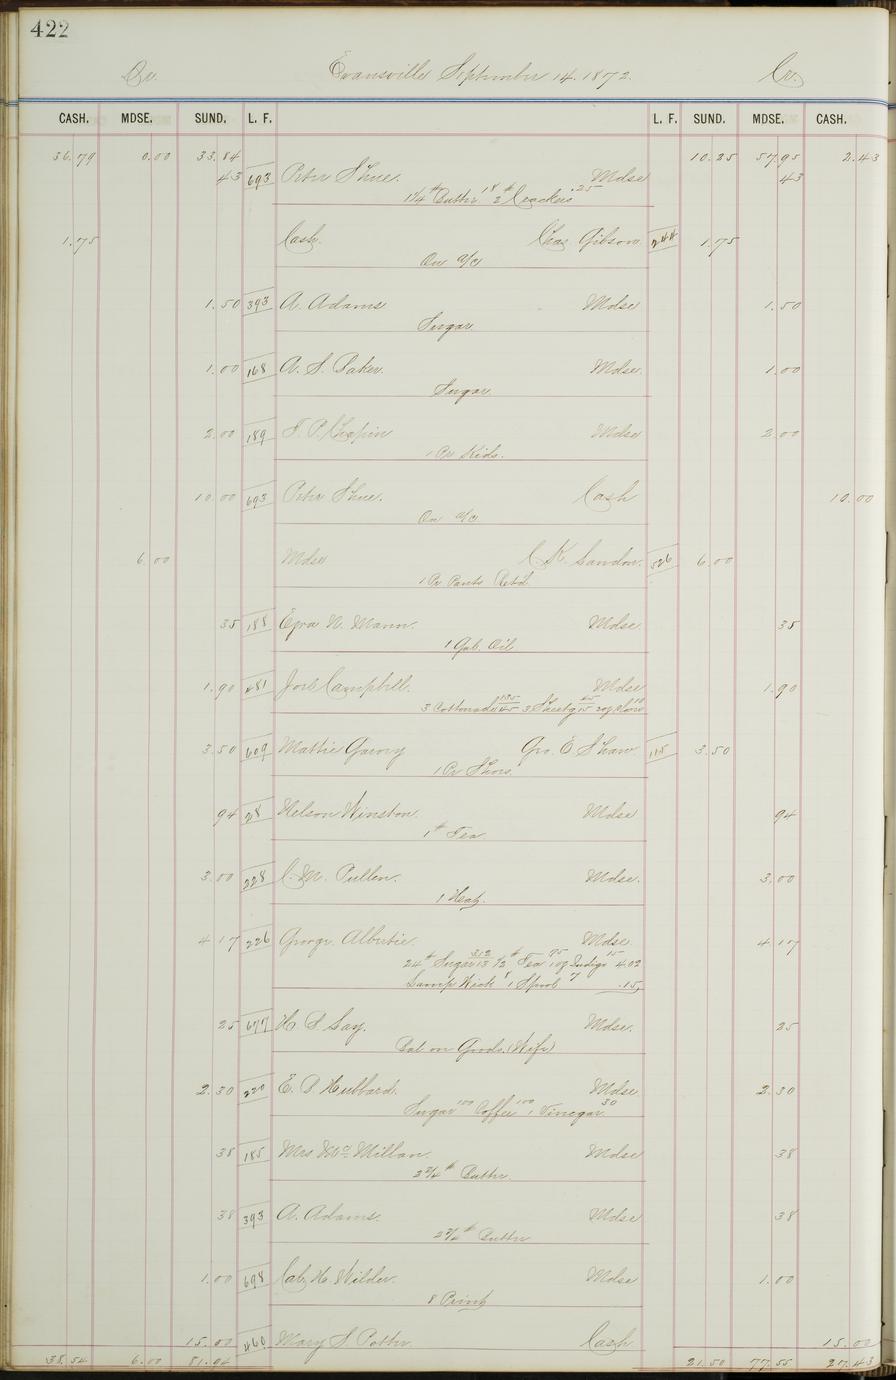 422
Dr. Evansville September 14. 1872. Cr.
CASH. MDSE. SUND. L. F. L. F. SUND. MDSE. CASH.
36.79 0.00 33.84 10.25 57.95 2.43
43 693 Peter Shue. Mdse 43
1 1/4 # Butter 18 2 # Crackers .25
1.75 Cash. Chas. Gibson. 244 1.75
On a/c
1.50 393 A. Adams Mdse 1.50
Sugar
1.00 168 A. S. Baker. Mdse. 1.00
Sugar.
2.00 189 Chapin Mdse 2.00
1 Pr Kids.
10.00 693 Peter Shue. Cash 10.00
On a/c
6.00 Mdse C. K. Landon. 526 6.00
1 Pr Pants Retd.
35 188 Ezra N. Mann. Mdse. 35
1 Gal. Oil
1.90 481 Campbell. Mdse 1.90
3 Cottonade 45 135 3 Sheetg 15 45 10
3.50 609 Mattie Geo. E Shaw 115 3.50
1 Pr Shoes.
94 28 Nelson Winston. Mdse 94
1 # Tea.
3.00 228 C. M. Pullen. Mdse. 3.00
1 Heatg.
4.17 226 George Albertie. Mdse. 4.17
24 # Sugar 13 312 1/2 # Tea 75 1 oz Indigo 15 4.02
Lamp Wick 8 1 Spool 7 .15
25 677 H. S. Lay. Mdse. 25
Bal on Goods. (Wife)
2.30 220 E. P. Hubbard. Mdse 2.30
Sugar 100 Coffee 100 1 Vinegar. 30
38 185 Mrs Millan. Mdse 38
2 3/4 # Butter.
38 393 A. Adams. Mdse 38
Butter
1.00 698 Cal. H. Wilder. Mdse 1.00
8 Print
15.00 460 Mary S. Potter. Cash. 15.00
38.54 6.00 81.94 21.50 77.55 27.43